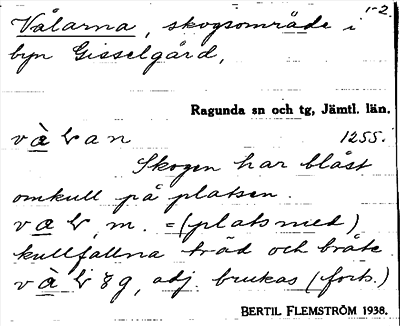 1-2.
Vålarna, skogsområde i
byn Gisselgård,
Ragunda sn och tg, Jämtl. län.
1255.
Skogen har blåst
omkull på platsen.
m. = (plats med)
kullfallna träd och bråte.
adj. brukas (forts.)
BERTIL FLEMSTRÖM 1938.